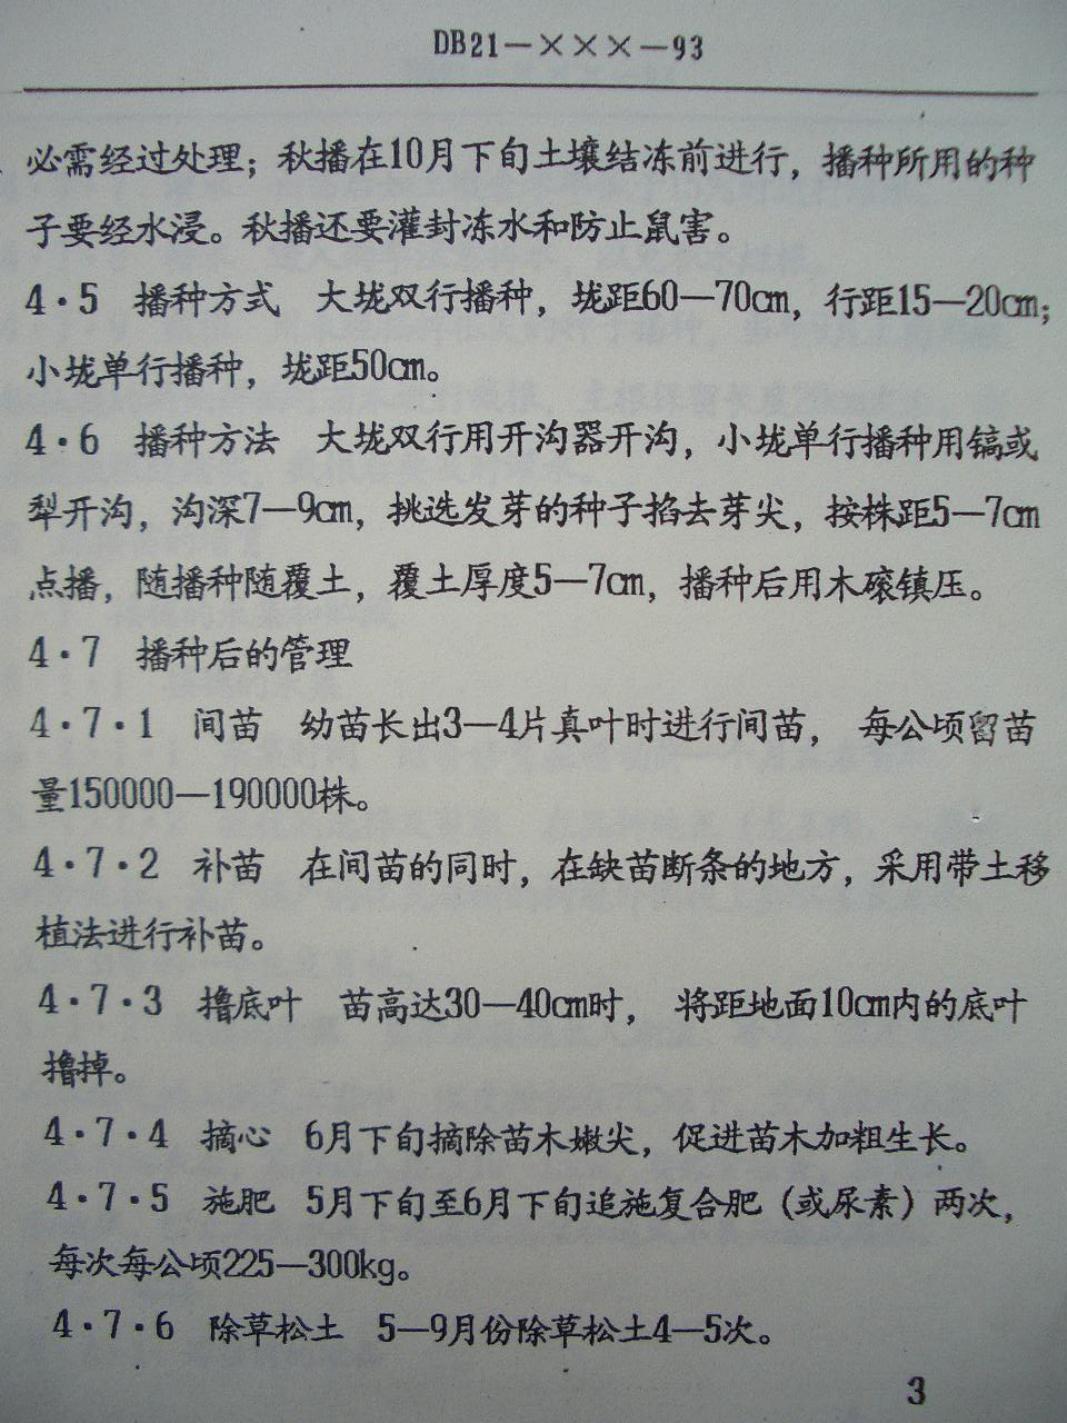 DB21—×××—93
必需经过处理；秋播在10月下旬土壤结冻前进行，播种所用的种
子要经水浸。秋播还要灌封冻水和防止鼠害。
4·5 播种方式 大垅双行播种，垅距60—70cm，行距15—20cm；
小垅单行播种，垅距50cm。
4·6 播种方法 大垅双行用开沟器开沟，小垅单行播种用镐或
犁开沟，沟深7—9cm，挑选发芽的种子掐去芽尖，按株距5—7cm
点播，随播种随覆土，覆土厚度5—7cm，播种后用木磙镇压。
4·7 播种后的管理
4·7·1 间苗 幼苗长出3—4片真叶时进行间苗， 每公顷留苗
量150000—190000株。
4·7·2 补苗 在间苗的同时，在缺苗断条的地方，采用带土移
植法进行补苗。
4·7·3 撸底叶 苗高达30—40cm时， 将距地面10cm内的底叶
撸掉。
4·7·4 摘心 6月下旬摘除苗木嫩尖，促进苗木加粗生长。
4·7·5 施肥 5月下旬至6月下旬追施复合肥（或尿素）两次，
每次每公顷225—300kg。
4·7·6 除草松土 5—9月份除草松土4—5次。
3